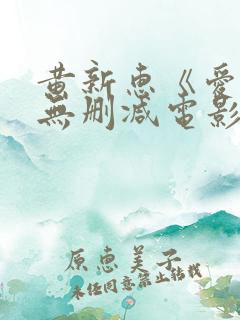 黄新惠《愛
無删减電影
原惠美子
未经同意禁止转载